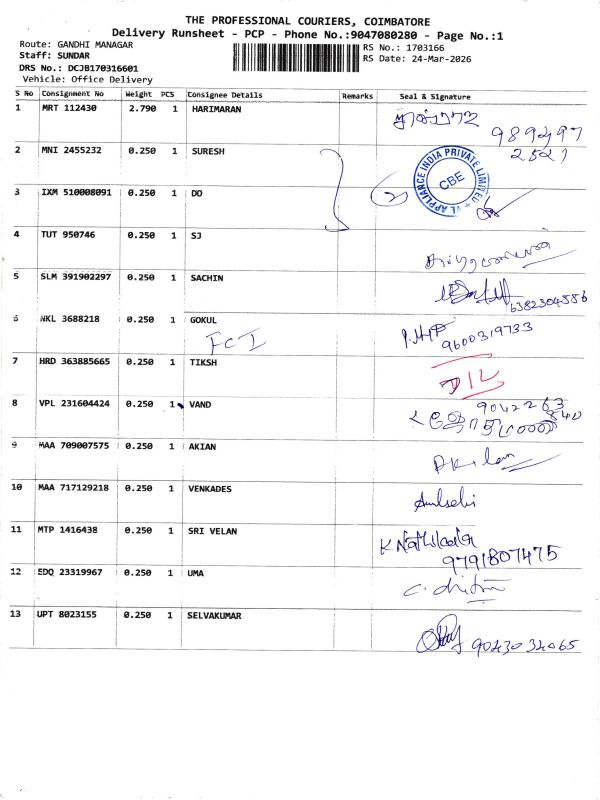 THE PROFESSIONAL COURIERS, COIMBATORE
Delivery Runsheet - PCP - Phone No.:9047080280 - Page No.:1
Route: GANDHI MANAGAR
RS No.: 1703166
Staff: SUNDAR
RS Date: 24-Mar-2026
DRS No.: DCJB170316601
Vehicle: Office Delivery
S No Consignment No Weight PCS Consignee Details Remarks Seal & Signature
1 MRT 112430 2.790 1 HARIMARAN
989497
2521
2 MNI 2455232 0.250 1 SURESH
VL APPLIANCE INDIA PRIVATE LIMITED
CBE
3 IXM 510008091 0.250 1 DO 2
4 TUT 950746 0.250 1 SJ
5 SLM 391902297 0.250 1 SACHIN
6382304556
6 NKL 3688218 0.250 1 GOKUL
FCI
9600319733
7 HRD 363885665 0.250 1 TIKSH
8 VPL 231604424 0.250 1 VAND 9042263
840
9 MAA 709007575 0.250 1 AKIAN
Akilan
10 MAA 717129218 0.250 1 VENKADES
11 MTP 1416438 0.250 1 SRI VELAN
9791807475
12 EDQ 23319967 0.250 1 UMA
13 UPT 8023155 0.250 1 SELVAKUMAR
9043034065